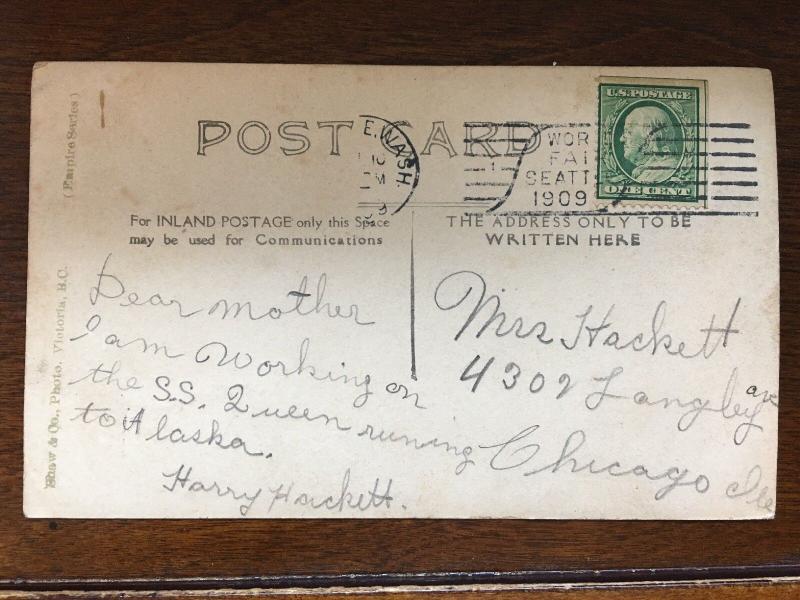 POST CARD
E. WASH.
WOR
FAI
SEATT
1909
U.S. POSTAGE
ONE CENT
For INLAND POSTAGE only this Space
may be used for Communications
THE ADDRESS ONLY TO BE
WRITTEN HERE
Dear mother
I am Working on
the S.S. Queen runing
to Alaska.
Harry Hackett.
Mrs Hackett
4302 Langley ave
Chicago Ill
(Empire Series)
& Co., Photo, Victoria, B.C.